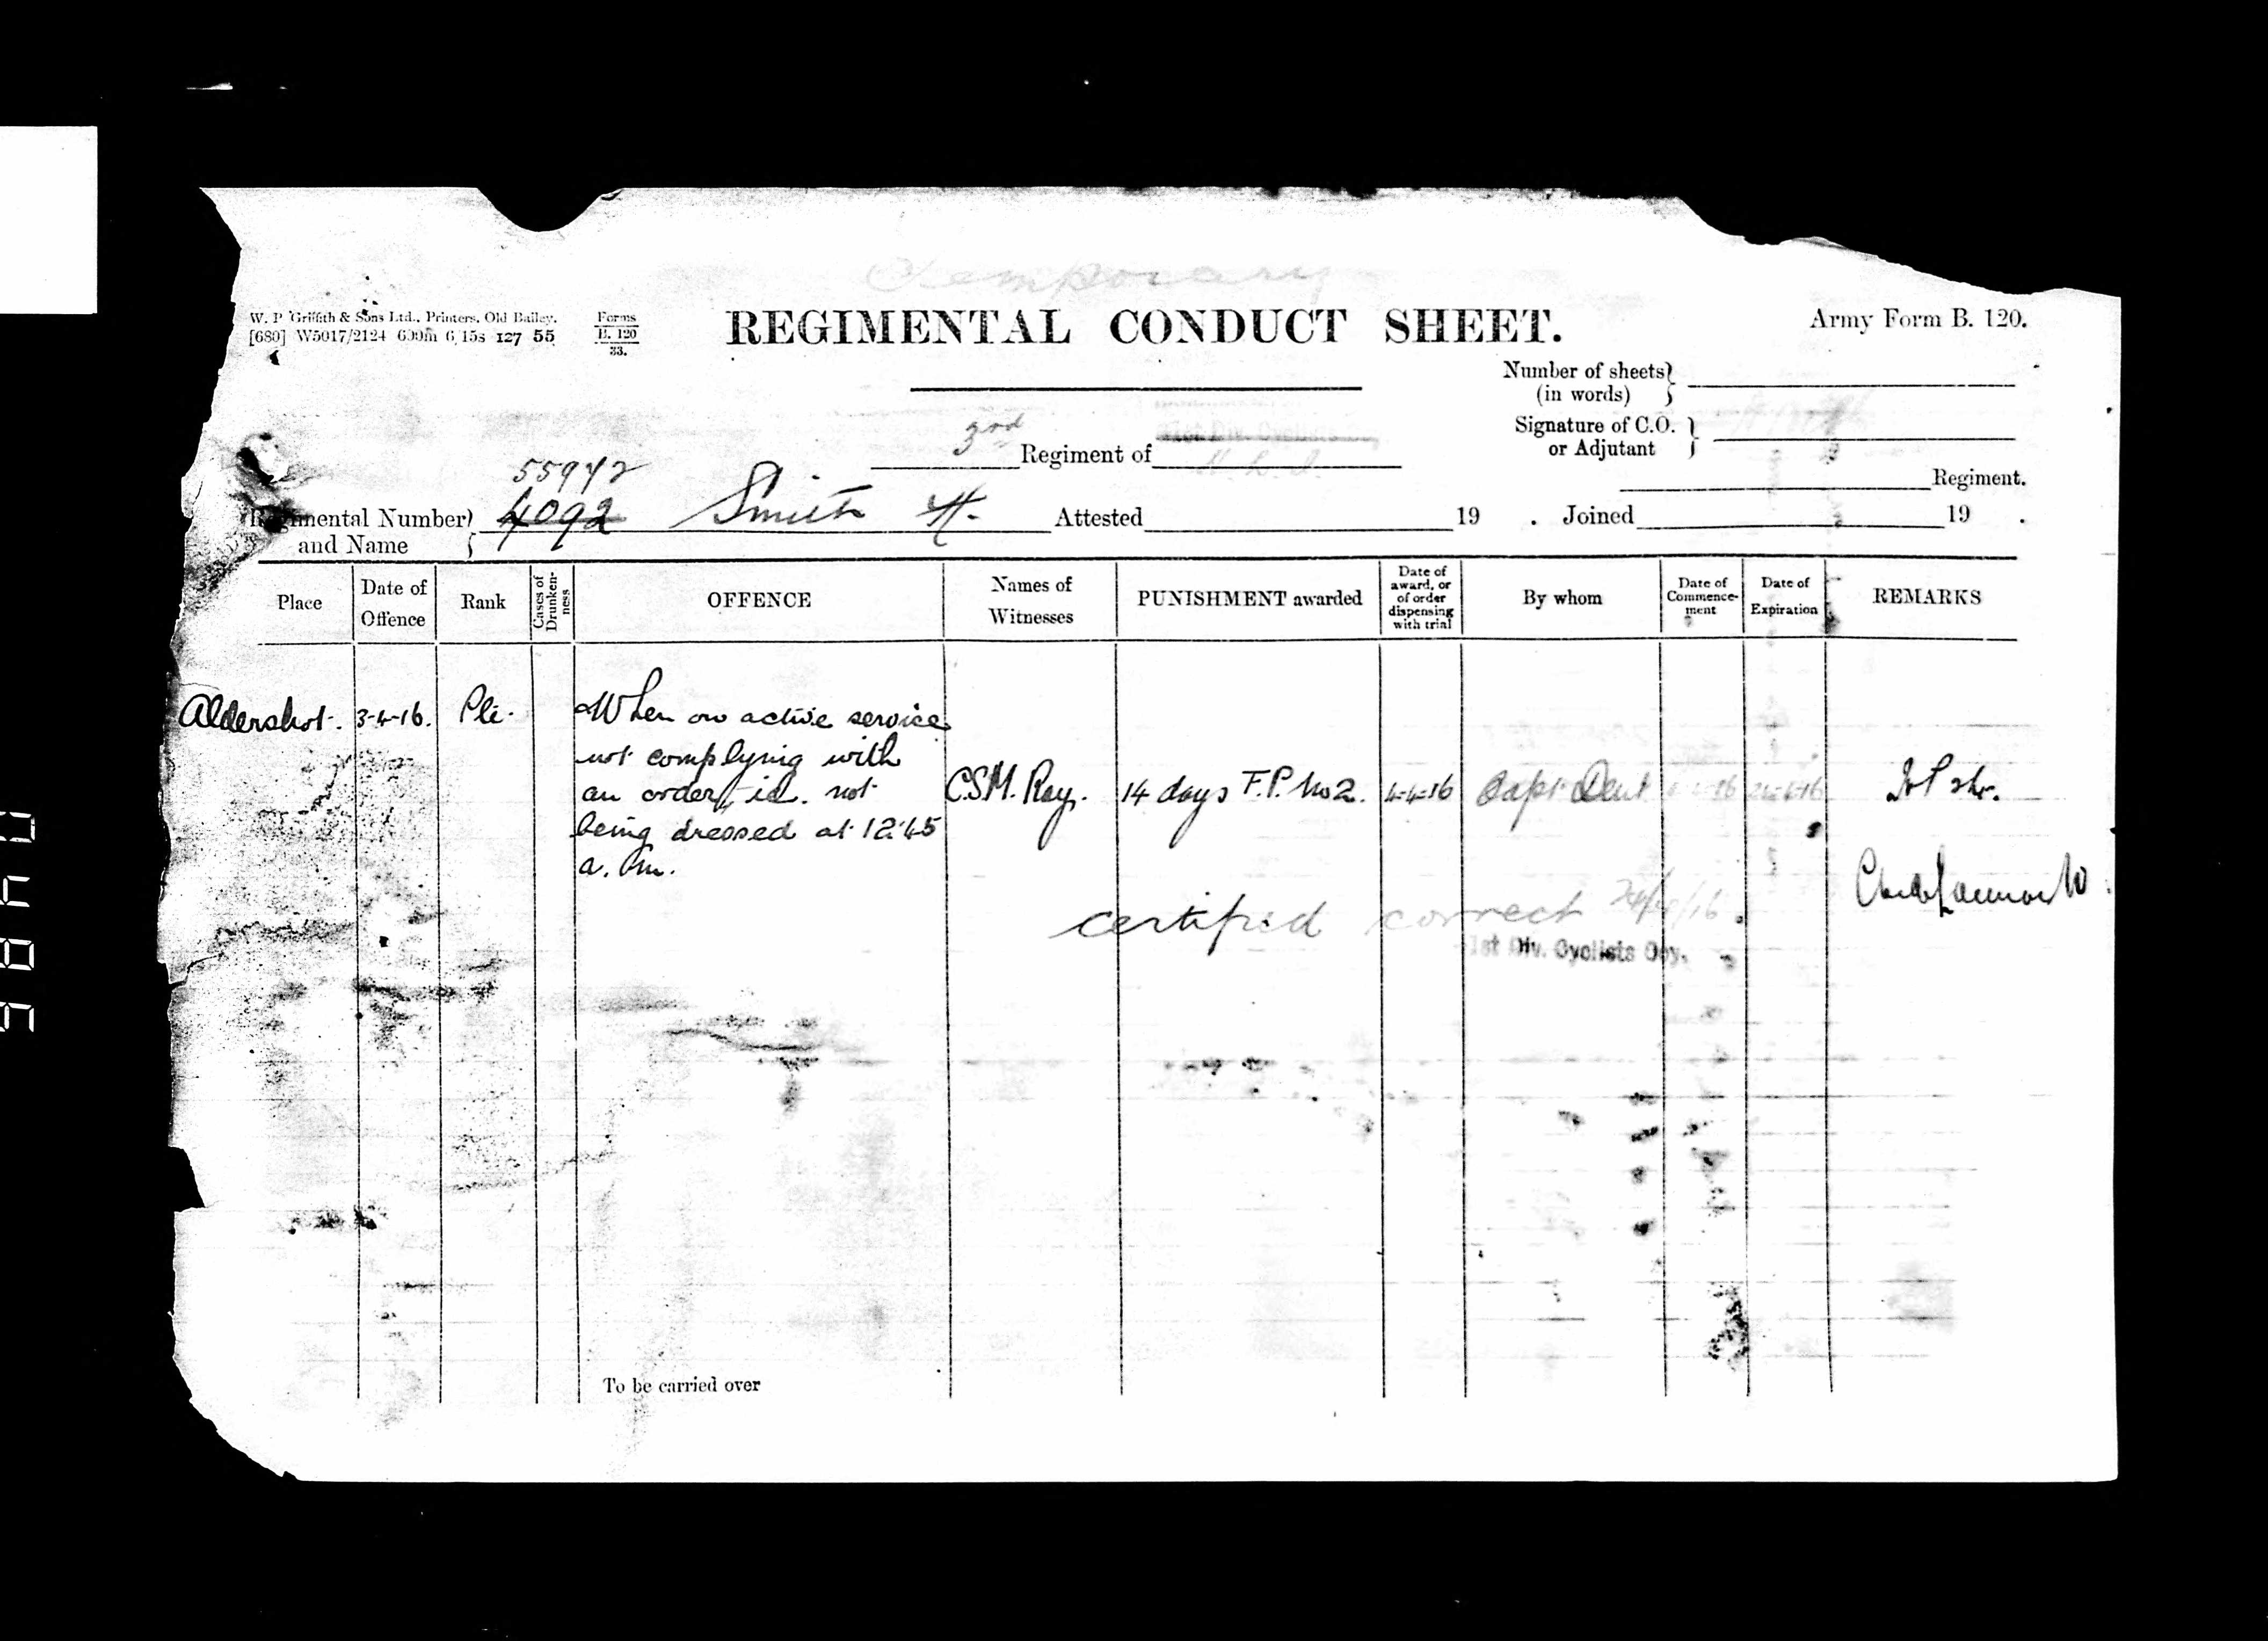 Temporary
W. P. Griffith & Sons Ltd., Printers, Old Bailey.
[680] W5017/2124 600m 6/15s 127 55
Forms
B. 120
33.
REGIMENTAL CONDUCT SHEET.
Army Form B. 120.
Number of sheets
(in words)
Signature of C.O.
or Adjutant
3rd Regiment of 1st Div. Cyclists
Regiment.
55942
Regimental Number
and Name
4092 Smith H.
Attested 19 . Joined 19 .
Place
Date of
Offence
Rank
Cases of
Drunken-
ness
OFFENCE
Names of
Witnesses
PUNISHMENT awarded
Date of
award, or
of order
dispensing
with trial
By whom
Date of
Commence-
ment
Date of
Expiration
REMARKS
Aldershot. 3-4-16. Pte. When on active service
not complying with
an order, ie. not
being dressed at 12.45
a.m.
C.S.M. Ray. 14 days F.P. No 2. 4-4-16 Capt Dent
certified correct
1st Div. Cyclists Coy.
To be carried over